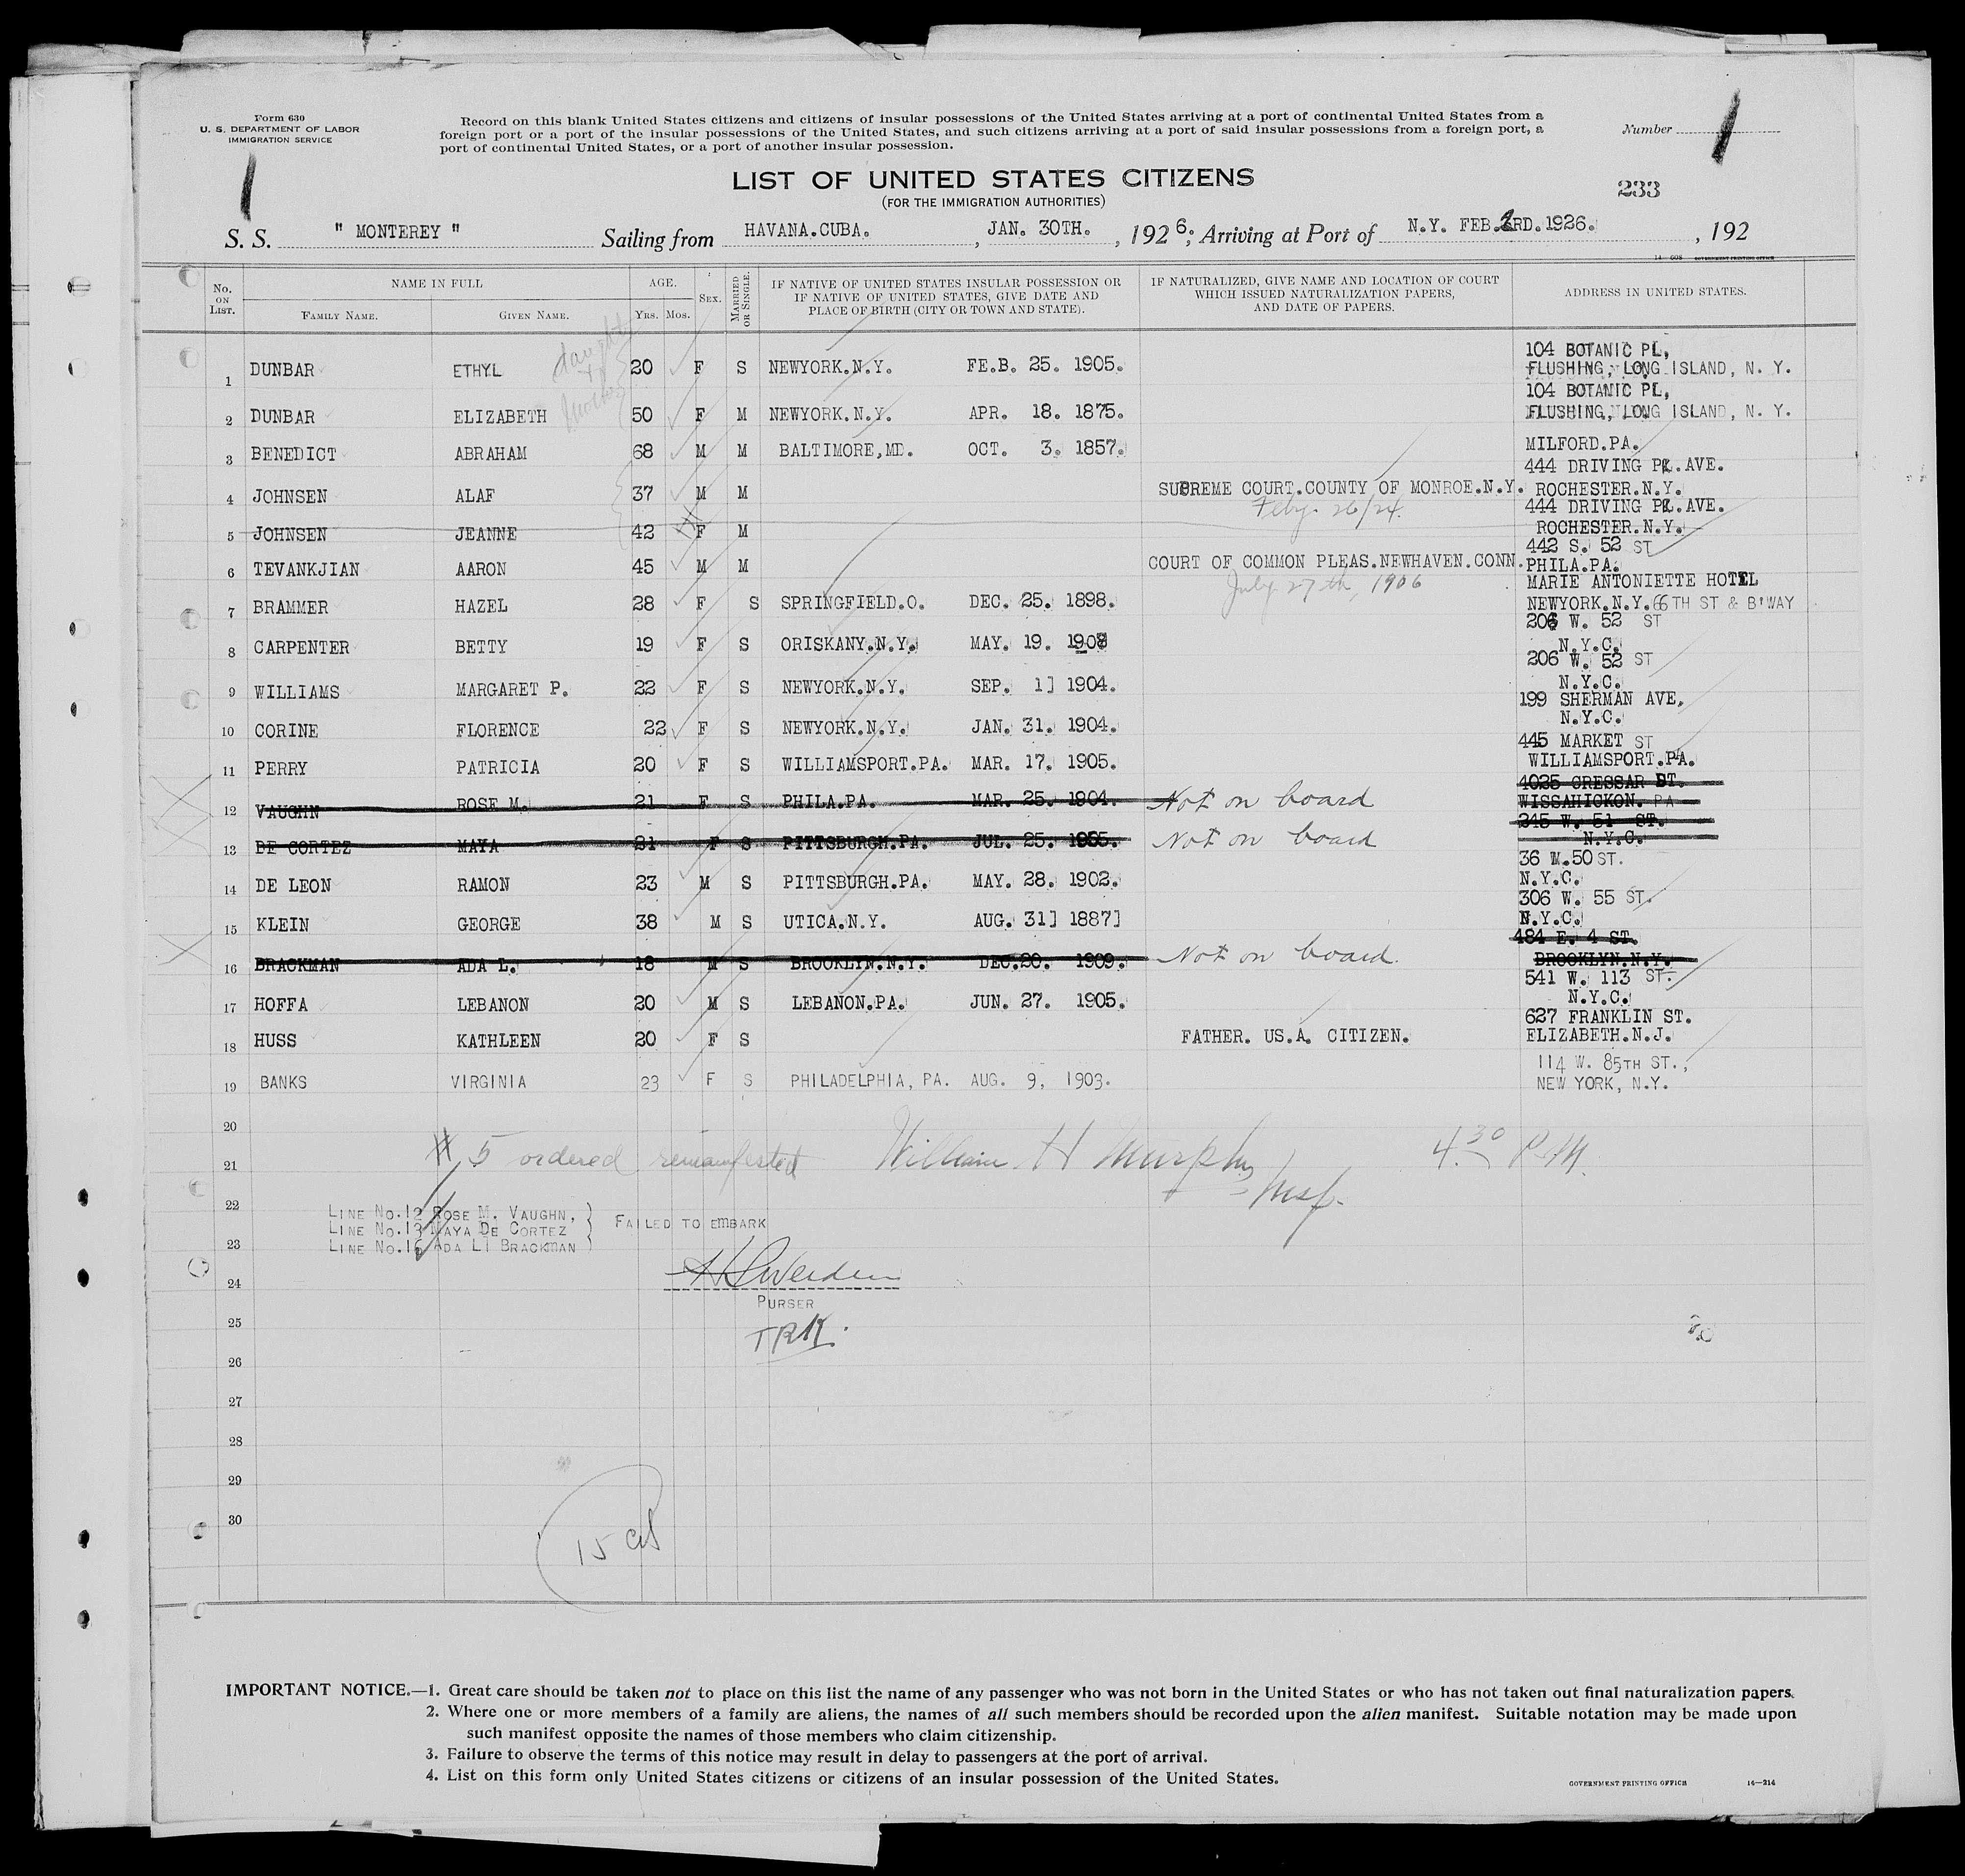 Form 630
U. S. DEPARTMENT OF LABOR
IMMIGRATION SERVICE
Record on this blank United States citizens and citizens of insular possessions of the United States arriving at a port of continental United States from a
foreign port or a port of the insular possessions of the United States, and such citizens arriving at a port of said insular possessions from a foreign port, a
port of continental United States, or a port of another insular possession.
Number
LIST OF UNITED STATES CITIZENS
(FOR THE IMMIGRATION AUTHORITIES)
233
S. S. " MONTEREY " Sailing from HAVANA.CUBA. , JAN. 30TH. , 1926; Arriving at Port of N.Y. FEB. RD.1926. , 192
No. ON LIST. NAME IN FULL AGE. SEX. MARRIED OR SINGLE. IF NATIVE OF UNITED STATES INSULAR POSSESSION OR IF NATIVE OF UNITED STATES, GIVE DATE AND PLACE OF BIRTH (CITY OR TOWN AND STATE). IF NATURALIZED, GIVE NAME AND LOCATION OF COURT WHICH ISSUED NATURALIZATION PAPERS, AND DATE OF PAPERS. ADDRESS IN UNITED STATES.
FAMILY NAME. GIVEN NAME. YRS. MOS.
1 DUNBAR ETHYL 20 F S NEWYORK.N.Y. FE.B. 25. 1905. 104 BOTANIC PL, FLUSHING, LONG ISLAND, N. Y.
2 DUNBAR ELIZABETH 50 F M NEWYORK.N.Y. APR. 18. 1875. 104 BOTANIC PL, FLUSHING, LONG ISLAND, N. Y.
3 BENEDICT ABRAHAM 68 M M BALTIMORE,MD. OCT. 3. 1857. MILFORD.PA.
4 JOHNSEN ALAF 37 M M SUPREME COURT.COUNTY OF MONROE.N.Y. Feby. 26/24. 444 DRIVING PK.AVE. ROCHESTER.N.Y.
5 JOHNSEN JEANNE 42 F M 444 DRIVING PK.AVE. ROCHESTER.N.Y.
6 TEVANKJIAN AARON 45 M M COURT OF COMMON PLEAS.NEWHAVEN.CONN. July 27th, 1906 442 S. 52 ST PHILA.PA.
7 BRAMMER HAZEL 28 F S SPRINGFIELD.O. DEC. 25. 1898. MARIE ANTONIETTE HOTEL NEWYORK.N.Y.66TH ST & B'WAY
8 CARPENTER BETTY 19 F S ORISKANY.N.Y. MAY. 19. 206 W. 52 ST N.Y.C.
9 WILLIAMS MARGARET P. 22 F S NEWYORK.N.Y. SEP. 1] 1904. 206 W. 52 ST N.Y.C.
10 CORINE FLORENCE 22 F S NEWYORK.N.Y. JAN. 31. 1904. 199 SHERMAN AVE, N.Y.C.
11 PERRY PATRICIA 20 F S WILLIAMSPORT.PA. MAR. 17. 1905. 445 MARKET ST WILLIAMSPORT.PA.
12 VAUGHN ROSE M. 21 F S PHILA.PA. MAR. 25. 1904. Not on board 4025 CRESSAR ST. WISSAHICKON. PA
13 DE CORTEZ MAYA 21 F S PITTSBURGH.PA. JUL. 25. Not on board 345 W. 51 ST. N.Y.C.
14 DE LEON RAMON 23 M S PITTSBURGH.PA. MAY. 28. 1902. 36 W.50 ST. N.Y.C.
15 KLEIN GEORGE 38 M S UTICA.N.Y. AUG. 31] 1887] 306 W. 55 ST. N.Y.C.
16 BRACKMAN ADA L. 18 M S BROOKLYN.N.Y. DEC.20. 1909. Not on board. 484 E. 4 ST. BROOKLYN.N.Y.
17 HOFFA LEBANON 20 M S LEBANON.PA. JUN. 27. 1905. 541 W. 113 ST. N.Y.C.
18 HUSS KATHLEEN 20 F S FATHER. US.A. CITIZEN. 627 FRANKLIN ST. ELIZABETH.N.J.
19 BANKS VIRGINIA 23 F S PHILADELPHIA, PA. AUG. 9, 1903. 114 W. 85TH ST., NEW YORK, N.Y.
20
# 5 ordered remanifested William H Murphy Insp. 4.30 P.M.
21
22
LINE NO.12 ROSE M. VAUGHN,
LINE NO.13 MAYA DE CORTEZ FAILED TO EMBARK
LINE NO.16 ADA L. BRACKMAN
23
24
PURSER
25
TRK.
26
27
28
29
30
15
IMPORTANT NOTICE.—1. Great care should be taken not to place on this list the name of any passenger who was not born in the United States or who has not taken out final naturalization papers.
2. Where one or more members of a family are aliens, the names of all such members should be recorded upon the alien manifest. Suitable notation may be made upon
such manifest opposite the names of those members who claim citizenship.
3. Failure to observe the terms of this notice may result in delay to passengers at the port of arrival.
4. List on this form only United States citizens or citizens of an insular possession of the United States.
GOVERNMENT PRINTING OFFICE 14—214